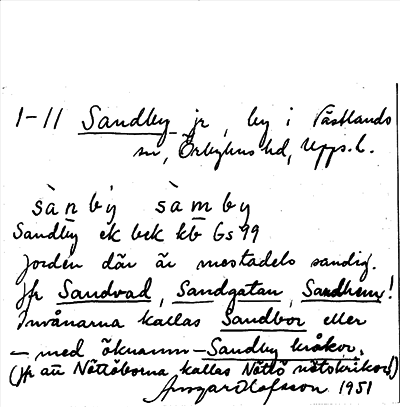 1-11 Sandby jr, by i Västlands
sn, Örbyhus hd, Upps. l.
sàn bý sàm by
Sandby ek bek kb Gs 99
Jorden där är mestadels sandig.
Jfr Sandvad, Sandgatan, Sandhem!
Invånarna kallas Sandbor eller
– med öknamn – Sandby kråkor.
(Jfr att Nöttöborna kallas Nöttö nötskrikor!)
Ansgar Olofsson 1951